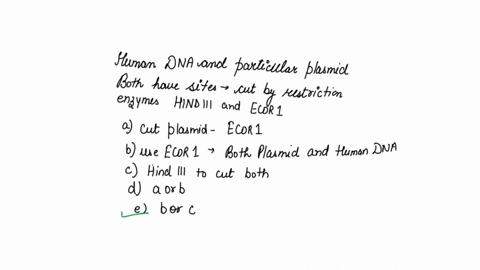 Human DNA and particular plasmid
Both have sites → cut by restriction
enzymes HIND III and ECOR1
a) Cut plasmid - ECOR1
b) use ECOR1 → Both Plasmid and Human DNA
c) Hind III to cut both
d) a or b
e) b or c